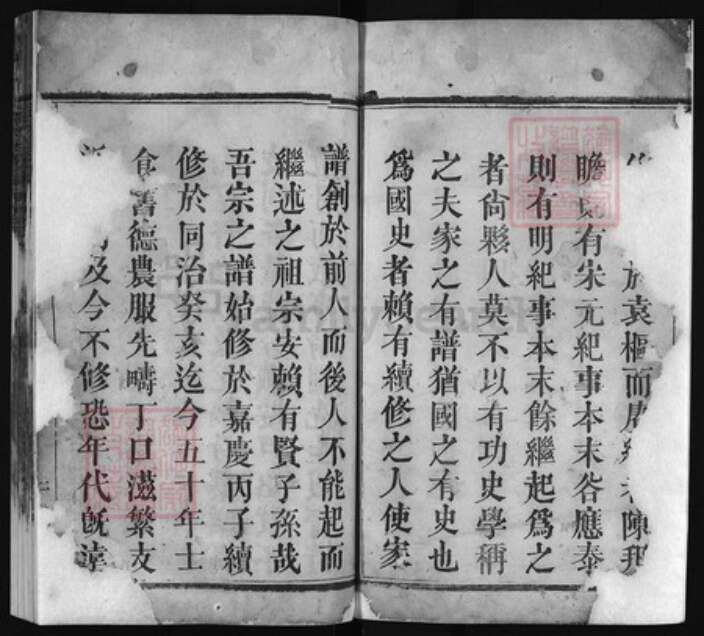 於袁樞而陳邦
瞻有宋元紀事本末谷應泰
則有明紀事本末餘繼起爲之
者尙夥人莫不以有功史學稱
之夫家之有譜猶國之有史也
爲國史者賴有續修之人使家
譜創於前人而後人不能起而
繼述之祖宗安賴有賢子孫哉
吾宗之譜始修於嘉慶丙子續
修於同治癸亥迄今五十年士
食舊德農服先疇丁口滋繁支
及今不修恐年代旣遠